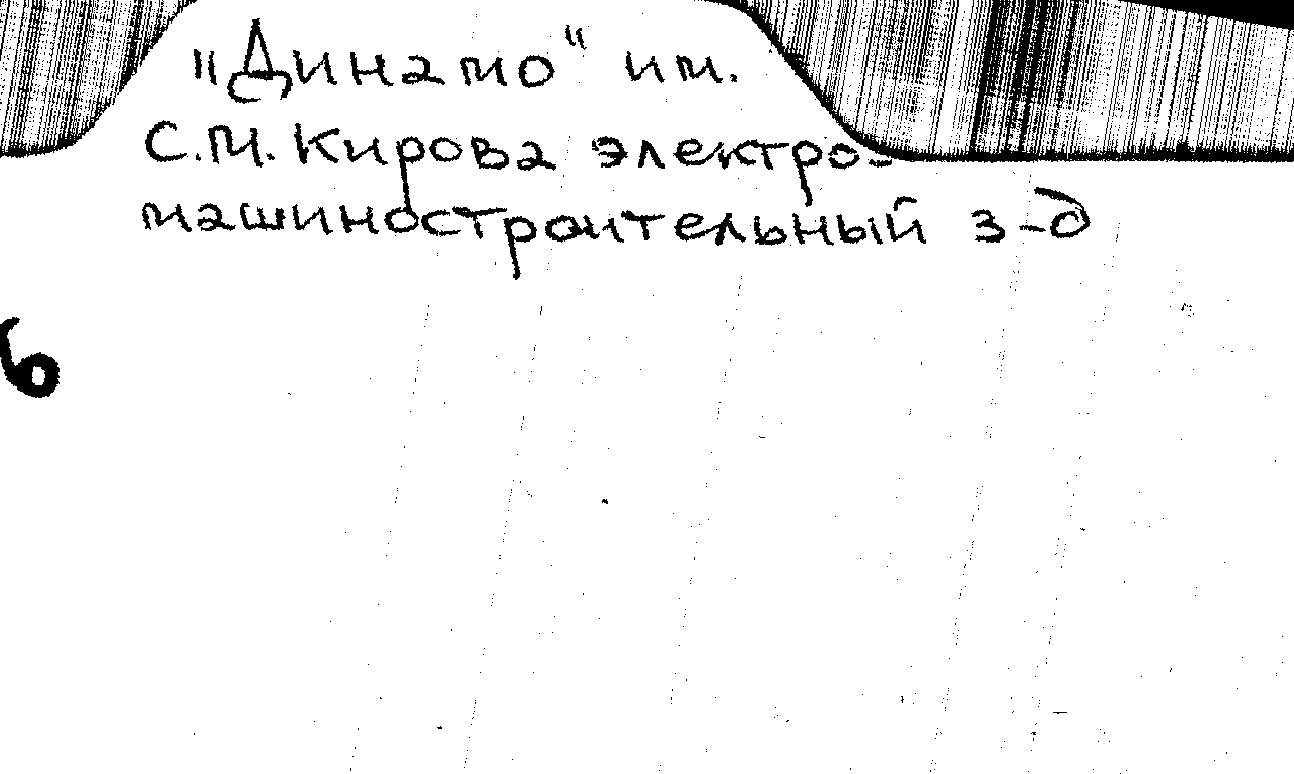 „Динамо“ им.
С.М. Кирова электро-
машиностроительный з-д